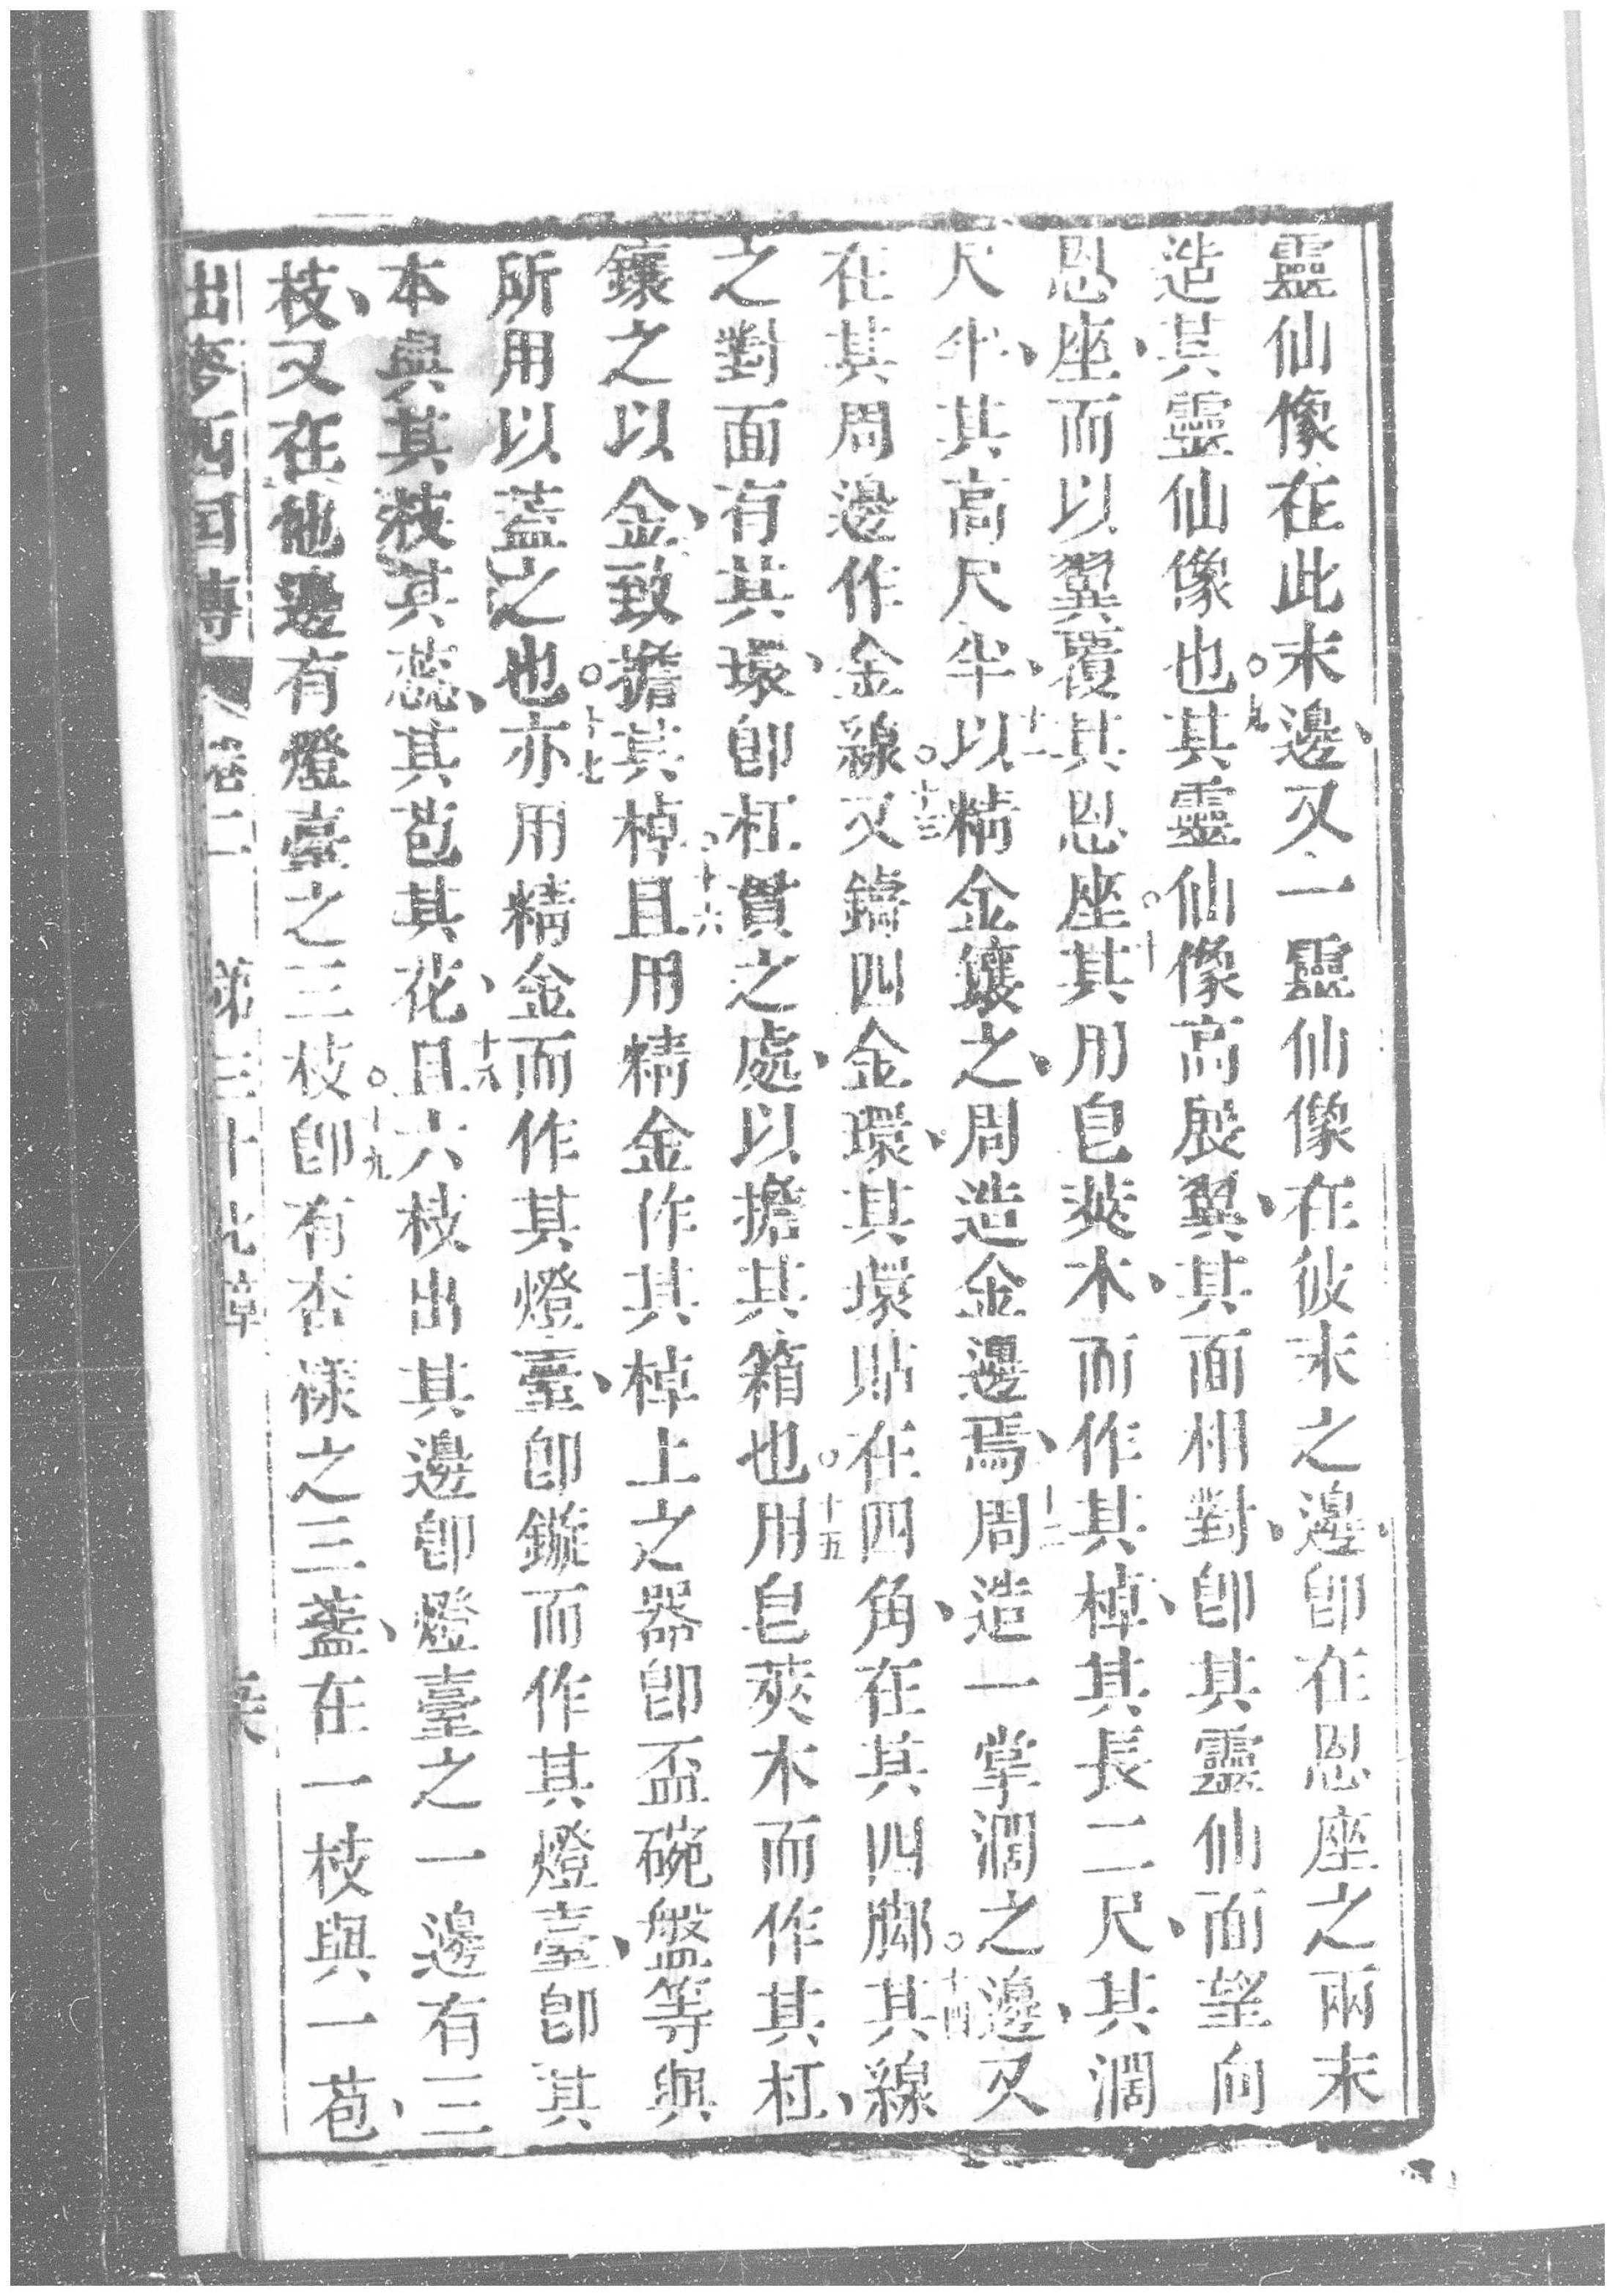 靈仙像在此末邊、又一靈仙像在彼末之邊、卽在恩座之兩末
造其靈仙像也。九其靈仙像高展翼、其面相對、卽其靈仙面望向
恩座、而以翼覆其恩座。十其用皂莢木、而作其棹、其長二尺、其濶
尺半、其高尺半、十一以精金鑲之、周造金邊焉、十二周造一掌濶之邊、又
在其周邊作金線。十三又鑄四金環、其環貼在四角、在其四脚。十四其線
之對面有其環、卽杠貫之處、以擔其箱也。十五用皂莢木而作其杠、
鑲之以金、致擔其棹。十六且用精金作其棹上之器、卽盃碗盤等與
所用以蓋之也。十七亦用精金而作其燈臺、卽鏇而作其燈臺、卽其
本與其枝其蕊、其苞其花、十八且六枝出其邊、卽燈臺之一邊有三
枝、又在他邊有燈臺之三枝。十九卽有杏樣之三盞、在一枝與一苞、
出麥西國傳 卷二 第三十七章